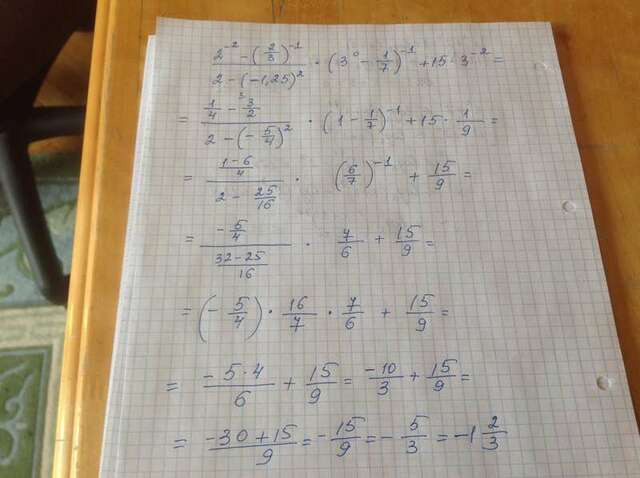 (2^-2 - (2/3)^-1)/(2 - (-1,25)^2) · (3^0 - 1/7)^-1 + 15 · 3^-2 =
= (1/4 - 3/2)/(2 - (-5/4)^2) · (1 - 1/7)^-1 + 15 · 1/9 =
= ((1-6)/4)/(2 - 25/16) · (6/7)^-1 + 15/9 =
= (-5/4)/((32-25)/16) · 7/6 + 15/9 =
= (-5/4) · 16/7 · 7/6 + 15/9 =
= (-5·4)/6 + 15/9 = -10/3 + 15/9 =
= (-30+15)/9 = -15/9 = -5/3 = -1 2/3